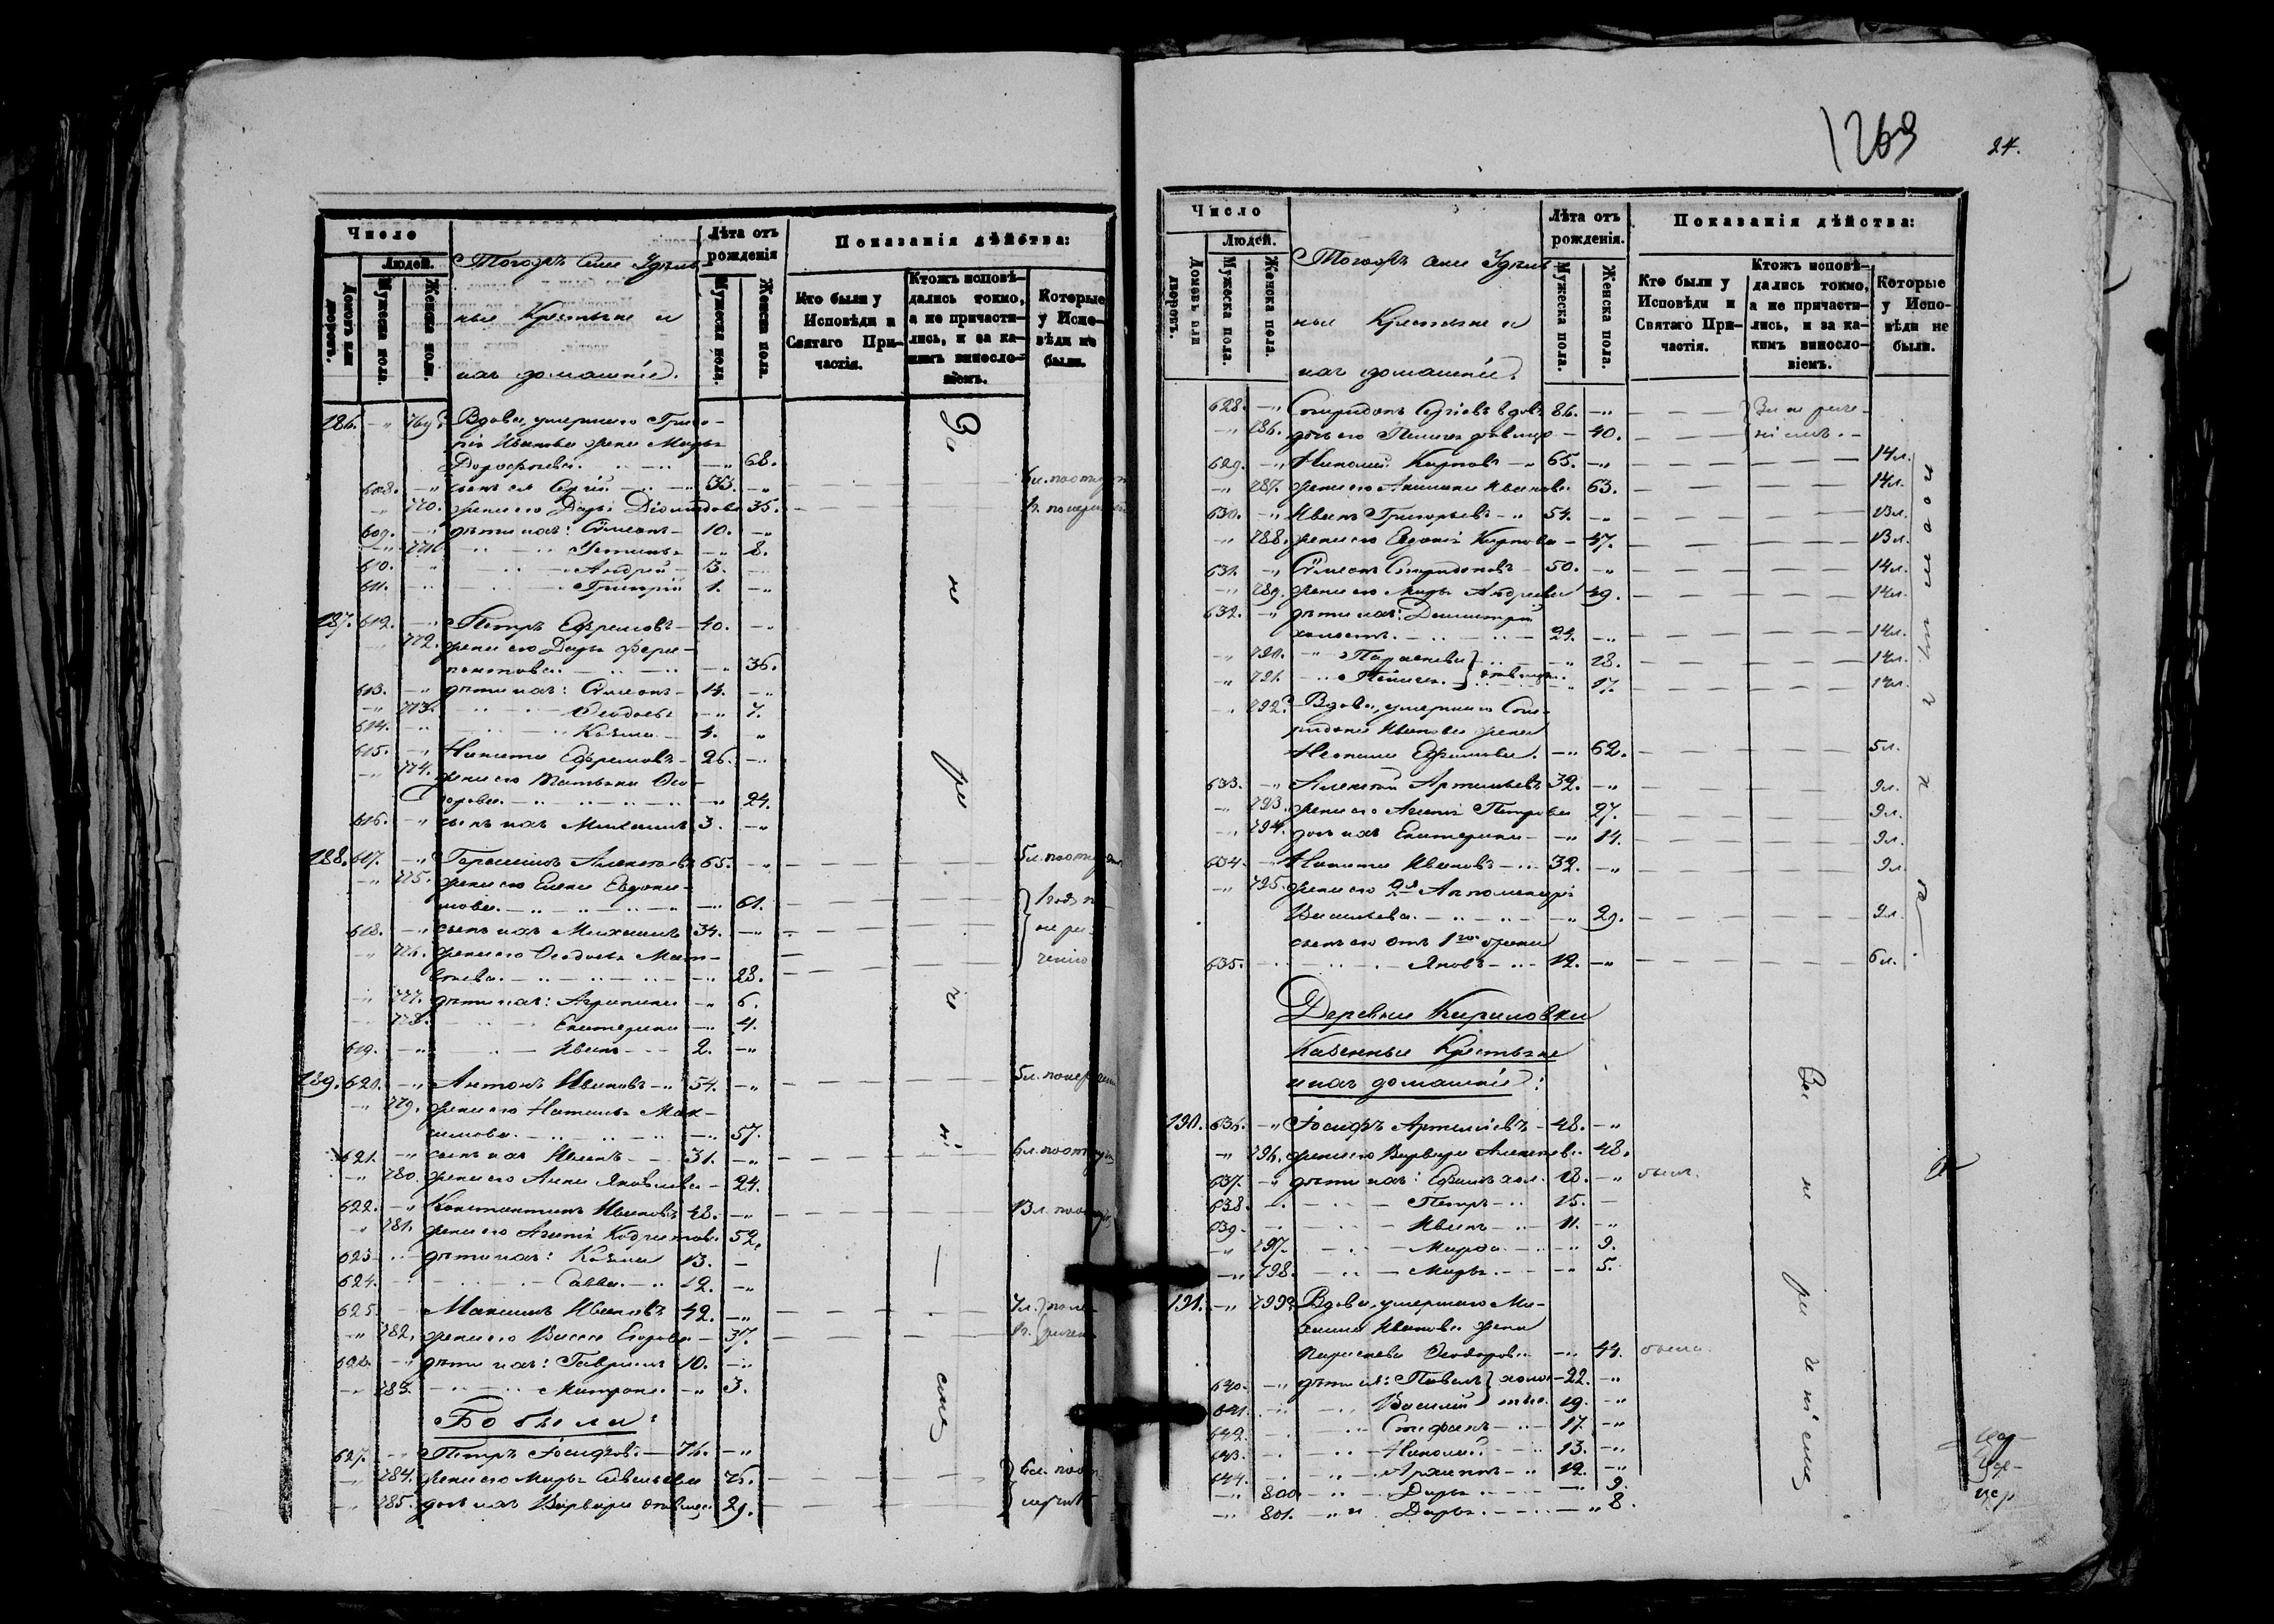 Число
Людей.
Домовъ или дворовъ.
Мужеска пола.
Женска пола.
Тогожъ села Удѣль-
ные Крестьяне и
ихъ домашніе.
Лѣта отъ рожденія
Мужеска пола.
Женска пола.
Показанія дѣйства:
Кто были у Исповѣди и Святаго При-частія.
Ктожъ исповѣ-дались токмо, а не причасти-лись, и за ка-кимъ винносло-віемъ.
Которые у Испо-вѣди не были.
186. 769. Вдова, умершаго Григо-
рія Иванова жена Марья
Дороѳеева. 68.
608. сынъ ея Сергій 33.
770. жена его Дарья Діомидова 35.
609. дѣти ихъ: Сѵмеонъ 10.
771. Устинья 8.
610. Андрей 3.
611. Григорій 1.
187. 612. Петръ Ефремовъ 40.
772. жена его Дарья Фера-
понтова. 36.
613. дѣти ихъ: Сѵмеонъ 14.
773. Ѳеодосья 7.
614. Козьма 4.
615. Никита Ефремовъ 26.
774. жена его Татьяна Ѳео-
дорова. 24.
616. сынъ ихъ Михаилъ 3.
188. 617. Герасимъ Алексѣевъ 65.
775. жена его Елена Евдоки-
мова. 61.
618. сынъ ихъ Михаилъ 34.
776. жена его Ѳеодосья Мат-
вѣева. 28.
777. дѣти ихъ: Агрипина 6.
778. Екатерина 4.
619. Иванъ 2.
189. 620. Антонъ Ивановъ 54.
779. жена его Наталья Мак-
симова. 57.
621. сынъ ихъ Иванъ 31.
780. жена его Анна Яковлева 24.
622. Константинъ Ивановъ 48.
781. жена его Агаѳія Кодратова 52.
623. дѣти ихъ: Козьма 13.
624. Савва. 12.
625. Максимъ Ивановъ 42.
782. жена его Васса Егорова 37.
626. дѣти ихъ: Гавріилъ 10.
783. Матрона 3.
Бобыли:
627. Петръ Іосифовъ 74.
784. жена его Марья Савельева 76.
785. дочь ихъ Варвара дѣвица 29.
За не ре че ні емъ
1269
24.
Число
Людей.
Домовъ или дворовъ.
Мужеска пола.
Женска пола.
Тогожъ села Удѣль-
ные Крестьяне и
ихъ домашніе.
Лѣта отъ рожденія.
Мужеска пола.
Женска пола.
Показанія дѣйства:
Кто были у Исповѣди и Святаго При-частія.
Ктожъ исповѣ-дались токмо, а не причасти-лись, и за ка-кимъ винносло-віемъ.
Которые у Испо-вѣди не были.
628. Спиридонъ Сергіевъ вдовъ 86.
786. дочь его Пелагея дѣвица 40.
629. Николай Карповъ 65. 14 л.
787. жена его Акилина Иванова 63. 14 л.
630. Иванъ Григорьевъ 54. 13 л.
788. жена его Евдокія Карпова 47. 13 л.
631. Сѵмеонъ Спиридоновъ 50. 14 л.
789. жена его Марья Андреева 49. 14 л.
632. дѣти ихъ: Димитрій
холостъ. 24. 14 л.
790. Параскева 18. 14 л.
791. Пелагея. дѣвицы. 17. 14 л.
792. Вдова, умершаго Спи-
ридона Иванова жена
Неонила Ефимова. 62. 5 л.
633. Алексѣй Артемьевъ 32. 9 л.
793. жена его Агаѳія Петрова 27. 9 л.
794. дочь ихъ Екатерина 14. 9 л.
634. Никита Ивановъ 32. 9 л.
795. жена его 2я Апполинарія
Васильева. 29. 9 л.
сынъ его отъ 1й жены
635. Яковъ 12. 6 л.
Деревни Кириловки
Казенные Крестьяне
и ихъ домашніе:
190. 636. Іосифъ Артеміевъ 48.
796. жена его Варвара Алексѣева 48.
637. дѣти ихъ: Ефимъ хол. 18. былъ.
638. Петръ 15.
639. Иванъ 11.
797. Марѳа 9.
798. Марья. 5.
191. 799. Вдова, умершаго Ми-
хаила Иванова жена
Параскева Ѳеодорова 44. была.
640. дѣти ея: Павелъ холо- 22.
641. Василій стые. 19.
642. Стефанъ 17.
643. Николай 13.
644. Архиппъ 12.
800. Дарья 9.
801. Дарья. 8.
За не ре че ні емъ